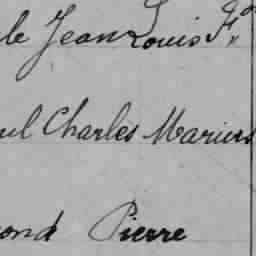 le Jean Louis Fs
ul Charles Marius
ond Pierre